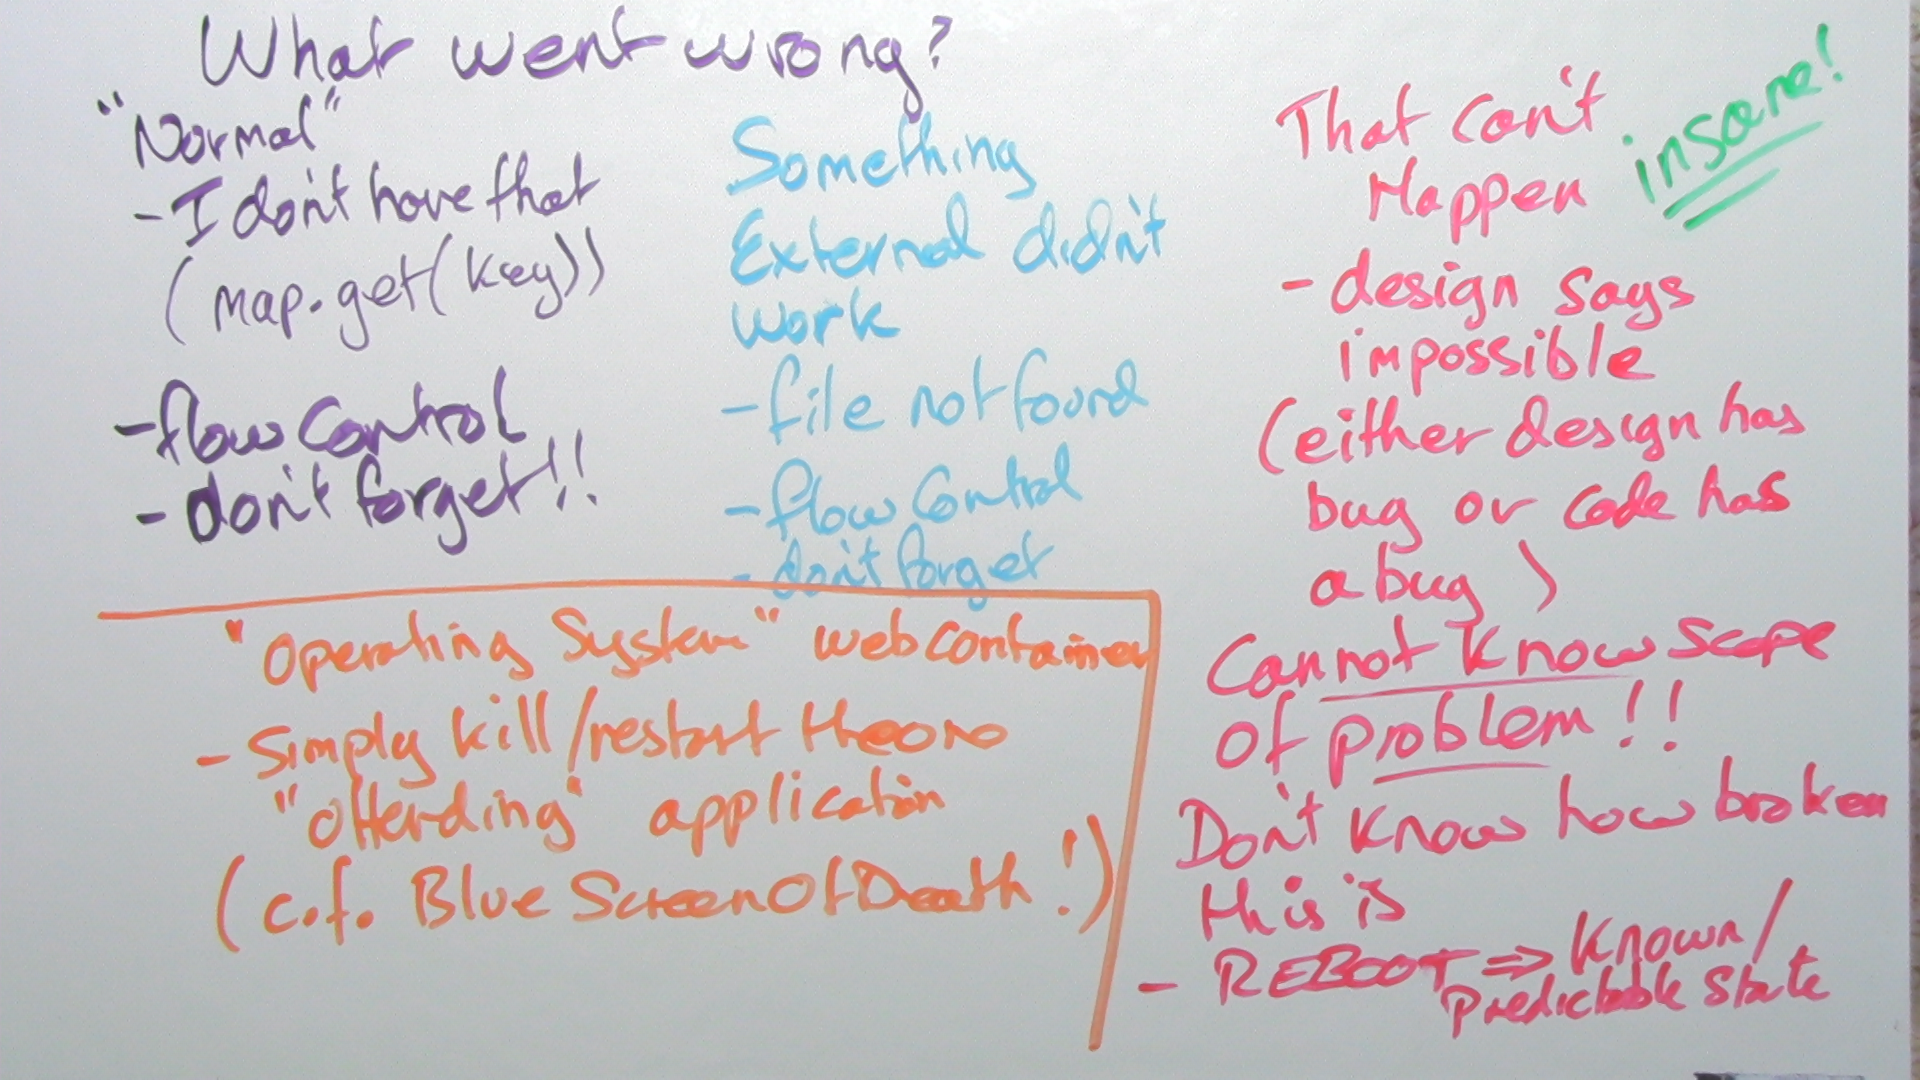 What went wrong?
"Normal"
- I don't have that
(map.get(key))
- flow control
- don't forget!!
Something
External didn't
work
- file not found
- flow control
- don't forget
That can't
Happen
insane!
- design says
impossible
(either design has
bug or code has
a bug)
Cannot know scope
of problem!!
Don't know how broken
this is
- REBOOT ⇒ Known/
Predictable State
"Operating System" web container
- Simply kill/restart the one
"offending" application
(c.f. Blue Screen Of Death!)